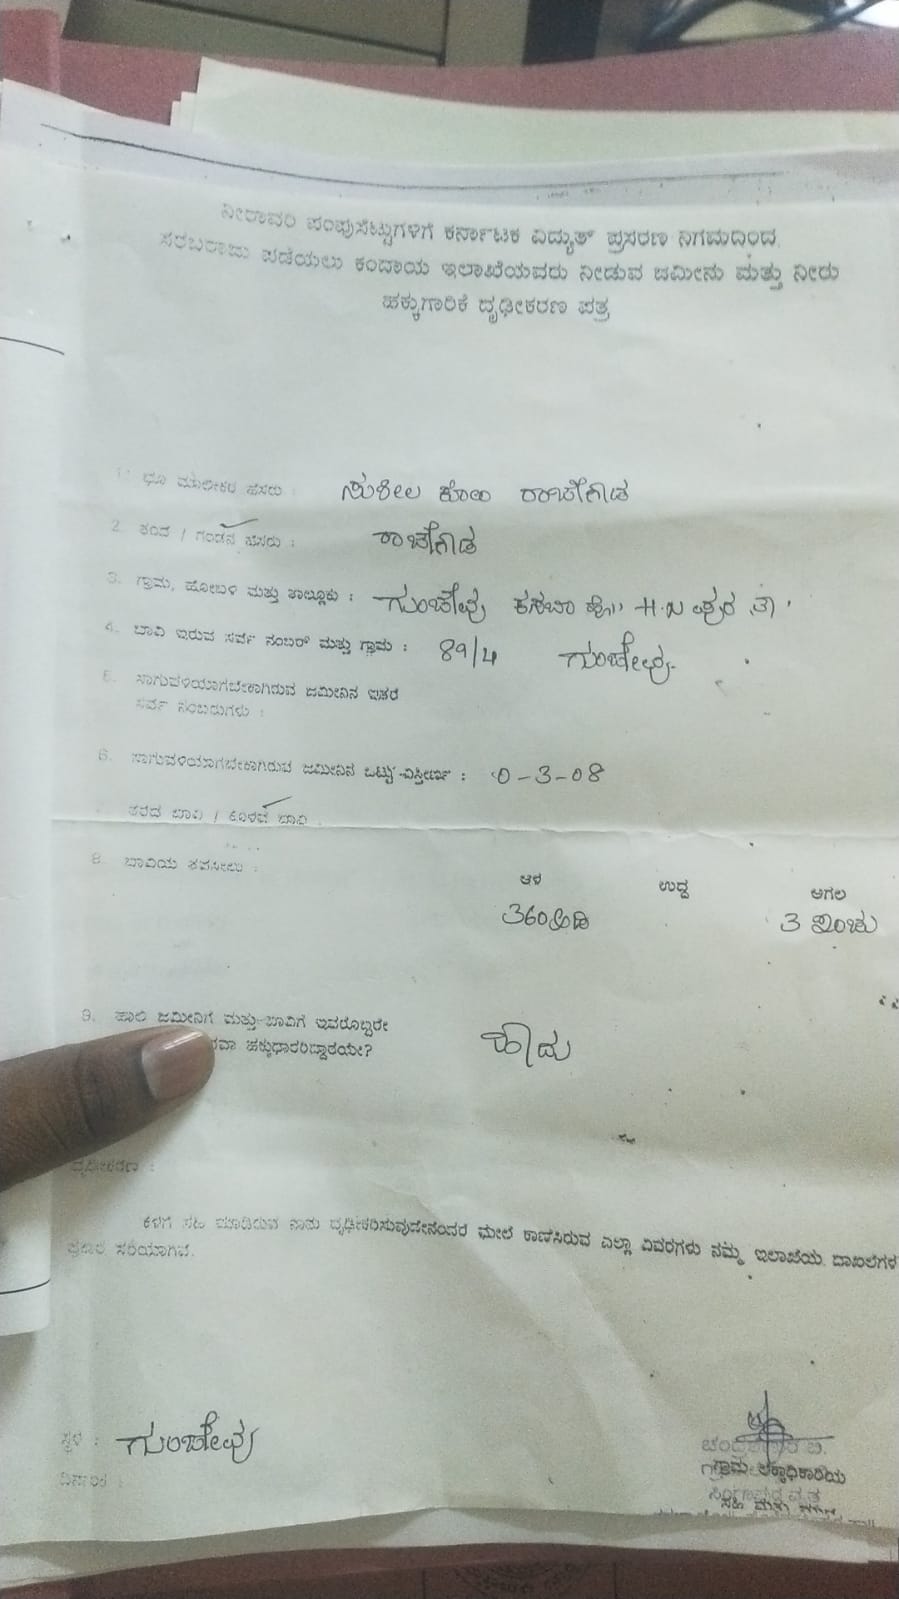 ನೀರಾವರಿ ಪಂಪುಸೆಟ್ಟುಗಳಿಗೆ ಕರ್ನಾಟಕ ವಿದ್ಯುತ್ ಪ್ರಸರಣ ನಿಗಮದಿಂದ
ಸರಬರಾಜು ಪಡೆಯಲು ಕಂದಾಯ ಇಲಾಖೆಯವರು ನೀಡುವ ಜಮೀನು ಮತ್ತು ನೀರು
ಹಕ್ಕುಗಾರಿಕೆ ದೃಢೀಕರಣ ಪತ್ರ
1. ಭೂ ಮಾಲೀಕರ ಹೆಸರು : ಸುಶೀಲ ಕೋಂ ರಾಚೇಗೌಡ
2. ತಂದೆ / ಗಂಡನ ಹೆಸರು : ರಾಚೇಗೌಡ
3. ಗ್ರಾಮ, ಹೋಬಳಿ ಮತ್ತು ತಾಲ್ಲೂಕು : ಕಸಬಾ ಹೋ|| H.N ಪುರ (ತಾ)
4. ಬಾವಿ ಇರುವ ಸರ್ವೆ ನಂಬರ್ ಮತ್ತು ಗ್ರಾಮ : 89/4
5. ಸಾಗುವಳಿಯಾಗಬೇಕಾಗಿರುವ ಜಮೀನಿನ ಇತರೆ
ಸರ್ವೆ ನಂಬರುಗಳು :
6. ಸಾಗುವಳಿಯಾಗಬೇಕಾಗಿರುವ ಜಮೀನಿನ ಒಟ್ಟು ವಿಸ್ತೀರ್ಣ : 0-3-08
ತೆರೆದ ಬಾವಿ / ಕೊಳವೆ ಬಾವಿ
8. ಬಾವಿಯ ತಪಸೀಲು :
ಆಳ ಉದ್ದ ಅಗಲ
360 ಅಡಿ 3 ಇಂಚು
9. ಹಾಲಿ ಜಮೀನಿಗೆ ಮತ್ತು ಬಾವಿಗೆ ಇವರೊಬ್ಬರೇ
ಹಕ್ಕುಧಾರರಿದ್ದಾರೆಯೇ? ಹೌದು
ದೃಢೀಕರಣ :
ಕೆಳಗೆ ಸಹಿ ಮಾಡಿರುವ ನಾನು ದೃಢೀಕರಿಸುವುದೇನೆಂದರೆ ಮೇಲೆ ಕಾಣಿಸಿರುವ ಎಲ್ಲಾ ವಿವರಗಳು ನಮ್ಮ ಇಲಾಖೆಯ ದಾಖಲೆಗಳ
ಪ್ರಕಾರ ಸರಿಯಾಗಿದೆ.
ಸ್ಥಳ :
ದಿನಾಂಕ :
ಗ್ರಾಮ ಲೆಕ್ಕಾಧಿಕಾರಿಯ
ಸಹಿ ಮತ್ತು ಮೊಹರು